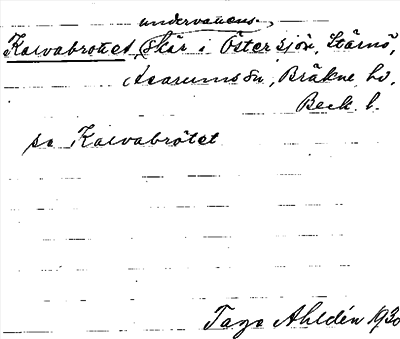 undervattens-,
Kalvabrottet, skär i Östersjön, Stärnö,
Asarums sn, Bräkne hd.
Beck. l.
se Kalvabrötet
Tage Ahldén 1930